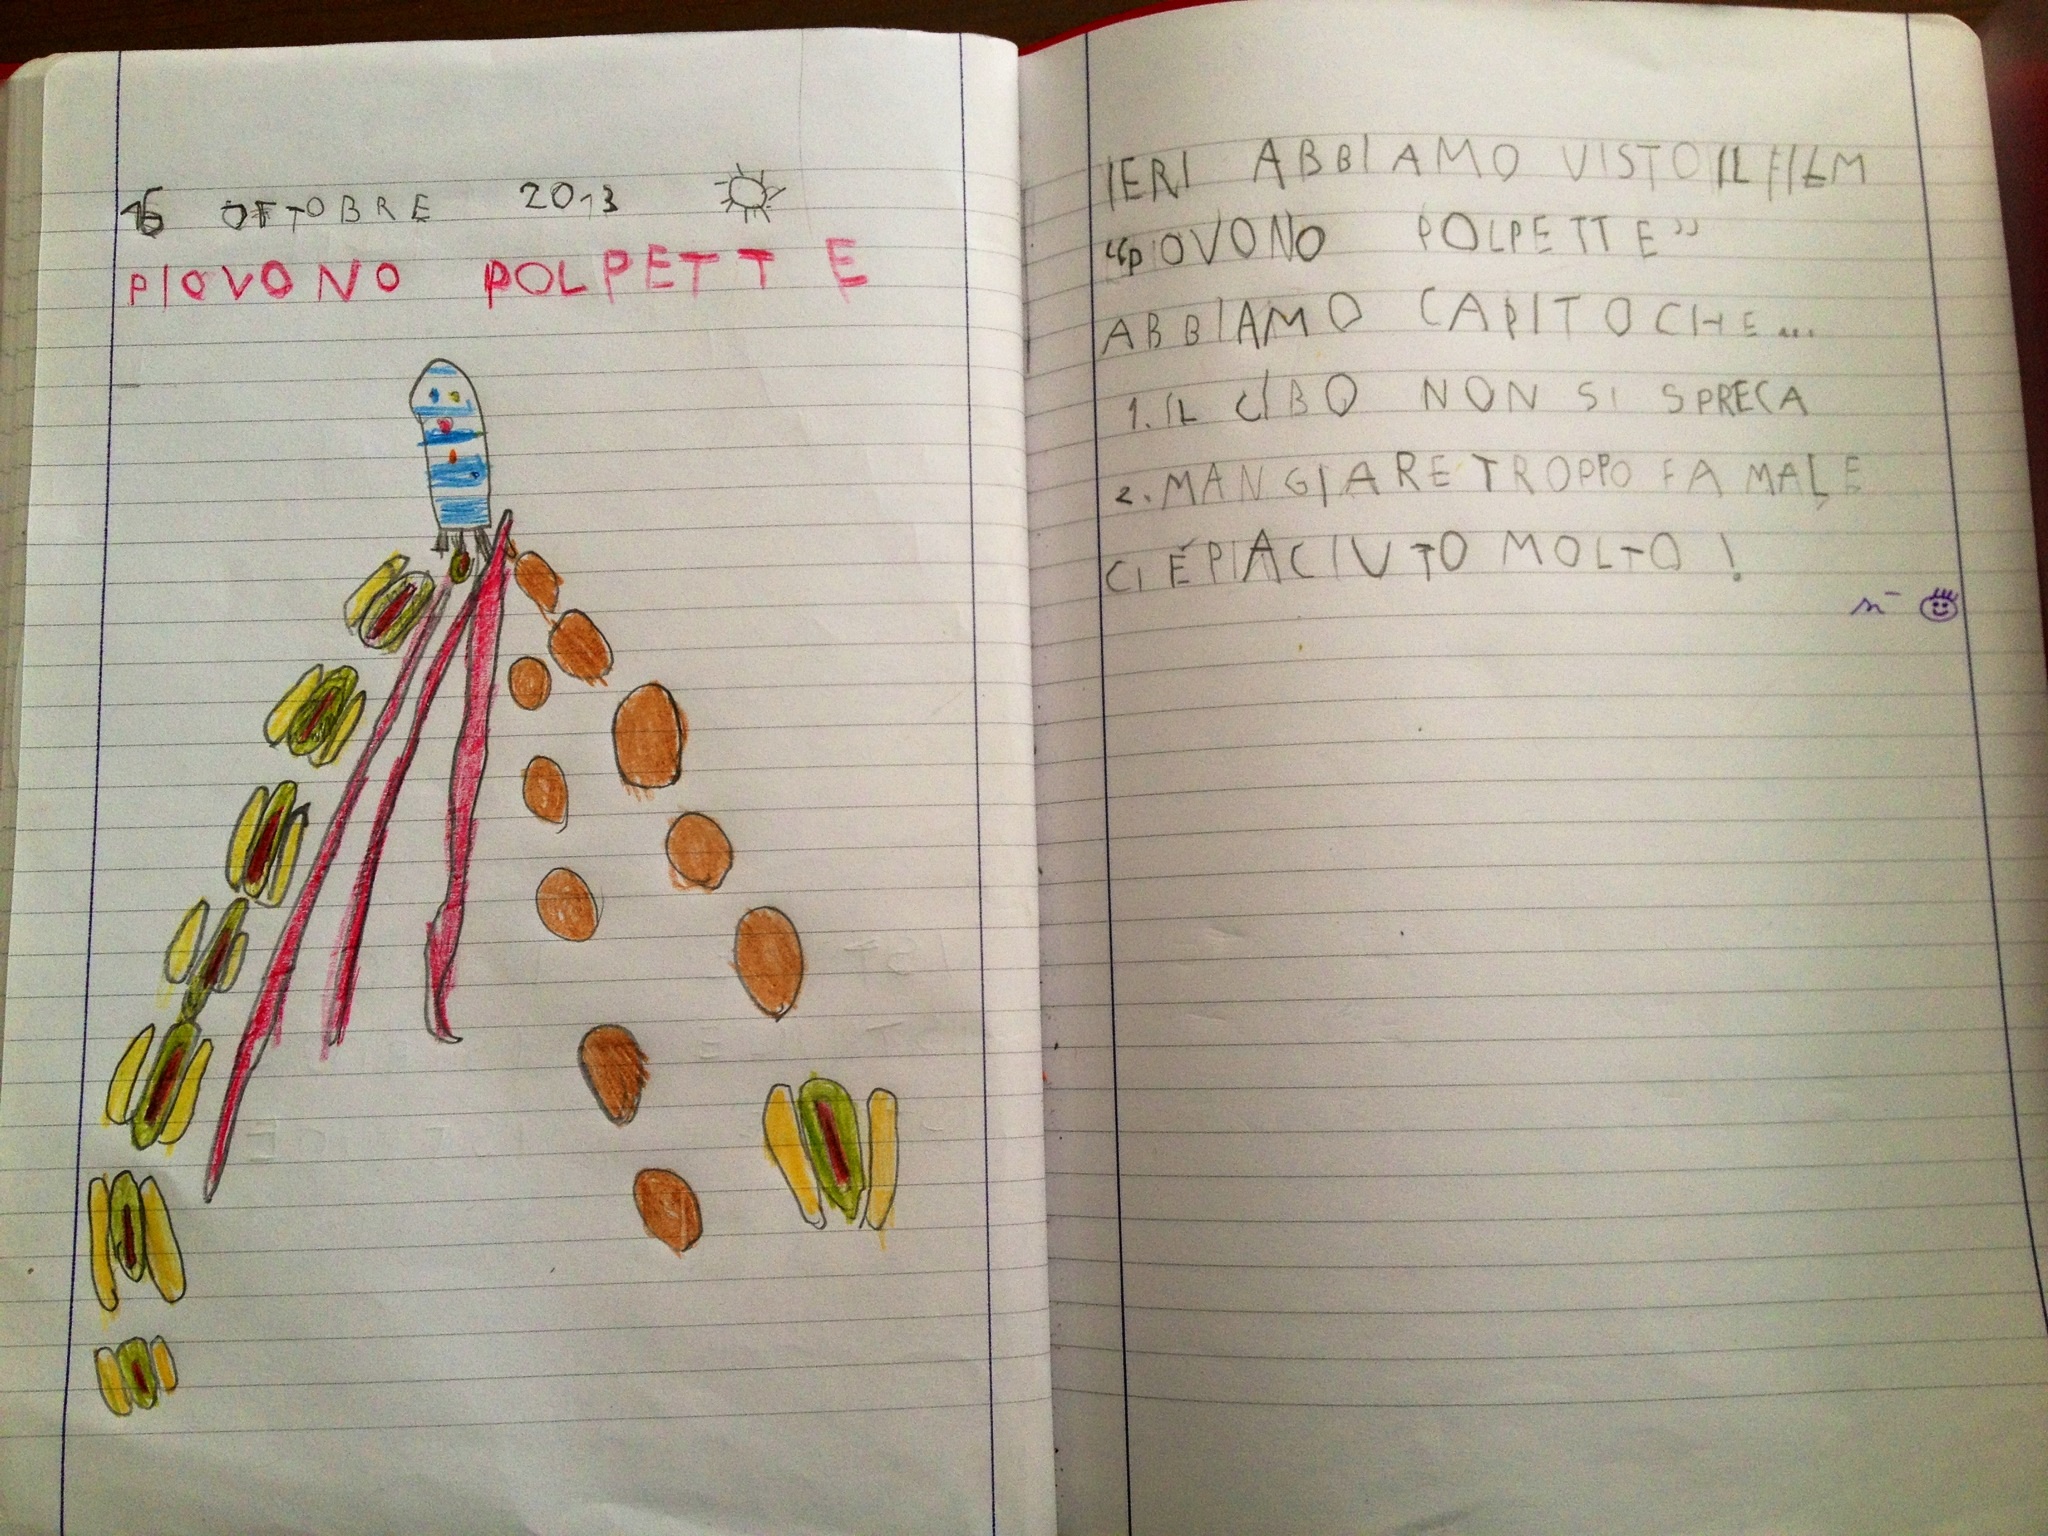 16 OTTOBRE 2013
PIOVONO POLPETTE
IERI ABBIAMO VISTO IL FILM
“PIOVONO POLPETTE”
ABBIAMO CAPITO CHE...
1. IL CIBO NON SI SPRECA
2. MANGIARE TROPPO FA MALE
CI É PIACIUTO MOLTO!